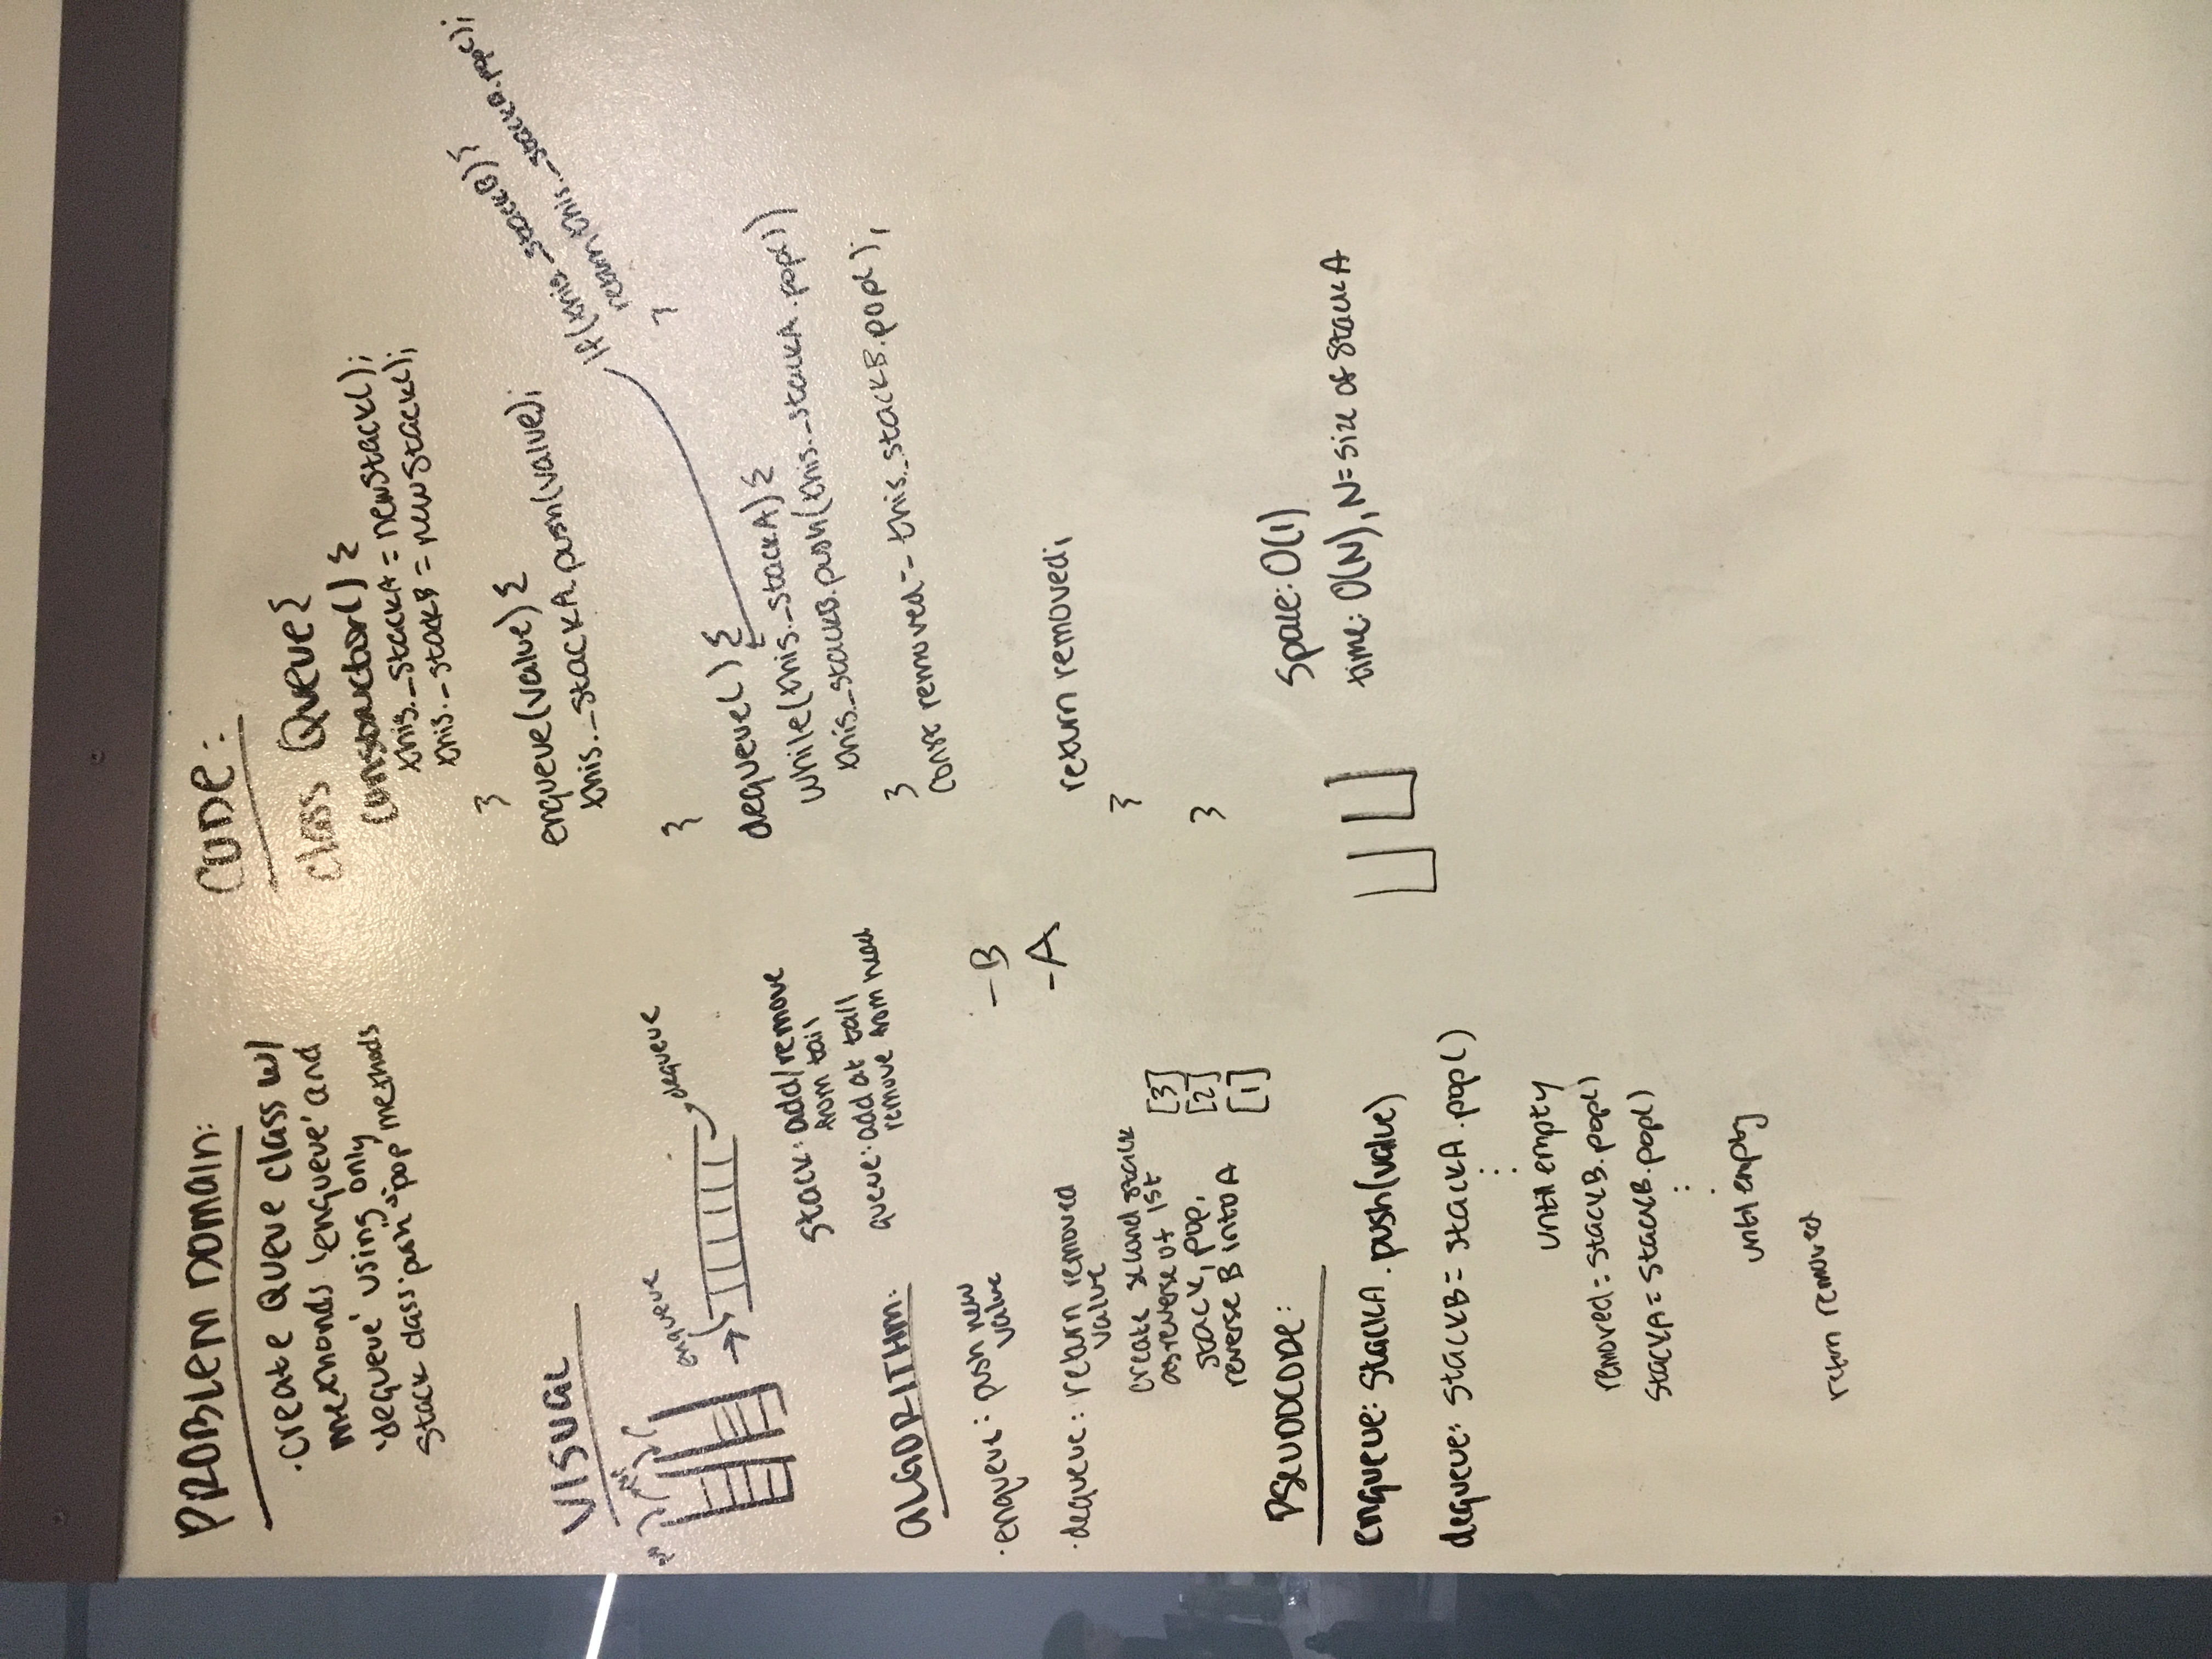 PROBLEM DOMAIN:
· Create Queue class w/
methonds 'enqueue' and
'dequeue' using only
Stack class 'push' 'pop' methods
VISUAL
enqueue
dequeue
Stack: add/remove
from tail
queue: add at tail
remove from head
ALGORITHM:
· enqueue: push new
value
· dequeue: return removed
value
create second stack
as reverse of 1st
stack, pop,
reverse B into A
[3]
[2]
[1]
- B
- A
PSEUDOCODE:
enqueue: StackA.push(value)
dequeue: StackB = StackA.pop()
⋮
until empty
removed = StackB.pop()
StackA = StackB.pop()
⋮
until empty
return removed
CODE:
class Queue {
constructor() {
this._stackA = new Stack();
this._stackB = new Stack();
}
enqueue(value) {
this._stackA.push(value);
}
if (this._stackB) {
return this._stackB.pop();
}
dequeue() {
while(this._stackA) {
this._stackB.push(this._stackA.pop())
}
const removed = this._stackB.pop();
return removed;
}
}
Space: O(1)
time: O(N), N = size of StackA